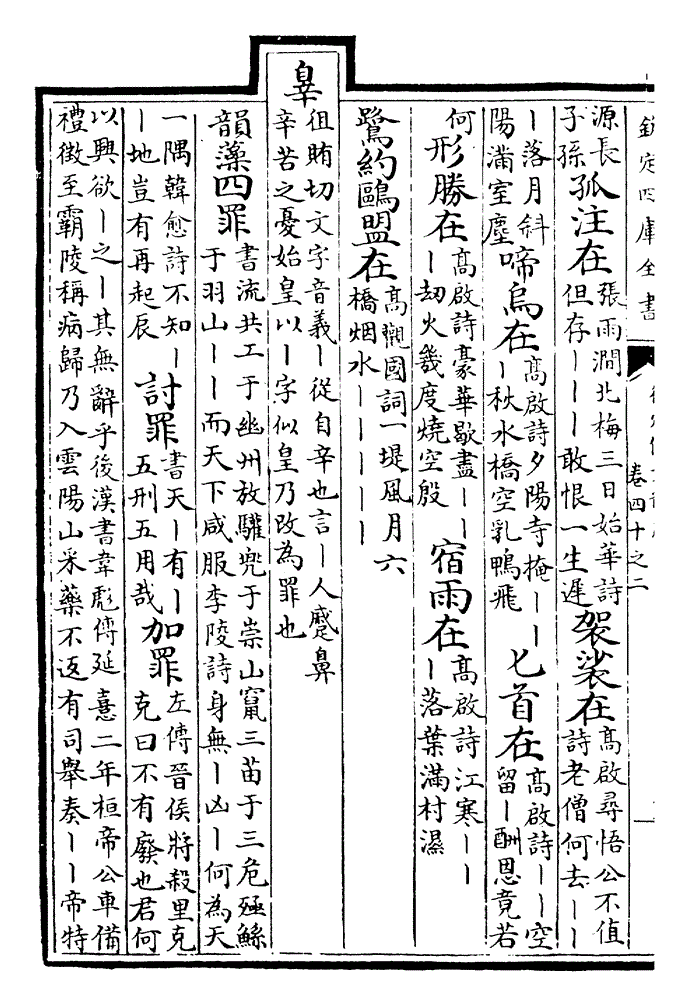 欽定四庫全書
卷四十之二
源長
子孫
孤注在
張雨澗北梅三日始華詩
但存｜｜｜敢恨一生遲
袈裟在
高啟尋悟公不值
詩老僧何去｜｜
｜落月斜
陽滿室塵
啼烏在
高啟詩夕陽寺掩｜｜
｜秋水橋空乳鴨飛
匕首在
高啟詩｜｜空
留｜酬恩竟若
何
形勝在
高啟詩豪華歇盡｜｜
｜刼火幾度燒空殷
宿雨在
高啟詩江寒｜｜
｜落葉滿村濕
鷺約鷗盟在
高觀國詞一堤風月六
橋烟水｜｜｜｜｜
辠
徂賄切文字音義｜從自辛也言｜人蹙鼻
辛苦之憂始皇以｜字似皇乃改為罪也
韻藻四罪
書流共工于幽州放驩兜于崇山竄三苗于三危殛鯀
于羽山｜｜而天下咸服李陵詩身無｜凶｜何為天
一隅韓愈詩不知｜
｜地豈有再起辰
討罪
書天｜有｜
五刑五用哉
加罪
左傳晉侯將殺里克
克曰不有廢也君何
以興欲｜之｜其無辭乎後漢書韋彪傳延熹二年桓帝公車備
禮徵至霸陵稱病歸乃入雲陽山采藥不返有司舉奏｜｜帝特